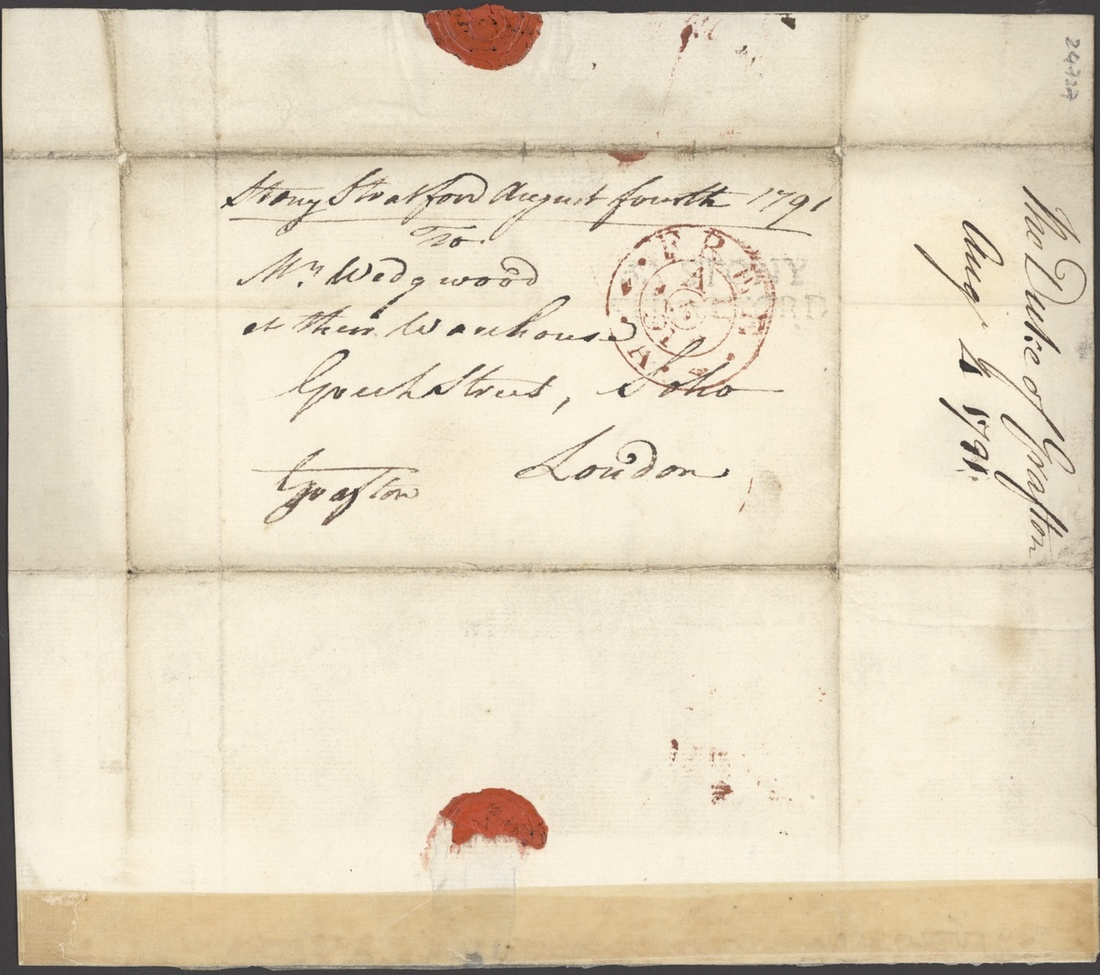 Stony Stratford August fourth 1791
To
Mr. Wedgwood
at their Warehouse
Greek Street, Soho
London
Grafton
STONY
STRATFORD
The Duke of Grafton
Aug. 4 1791